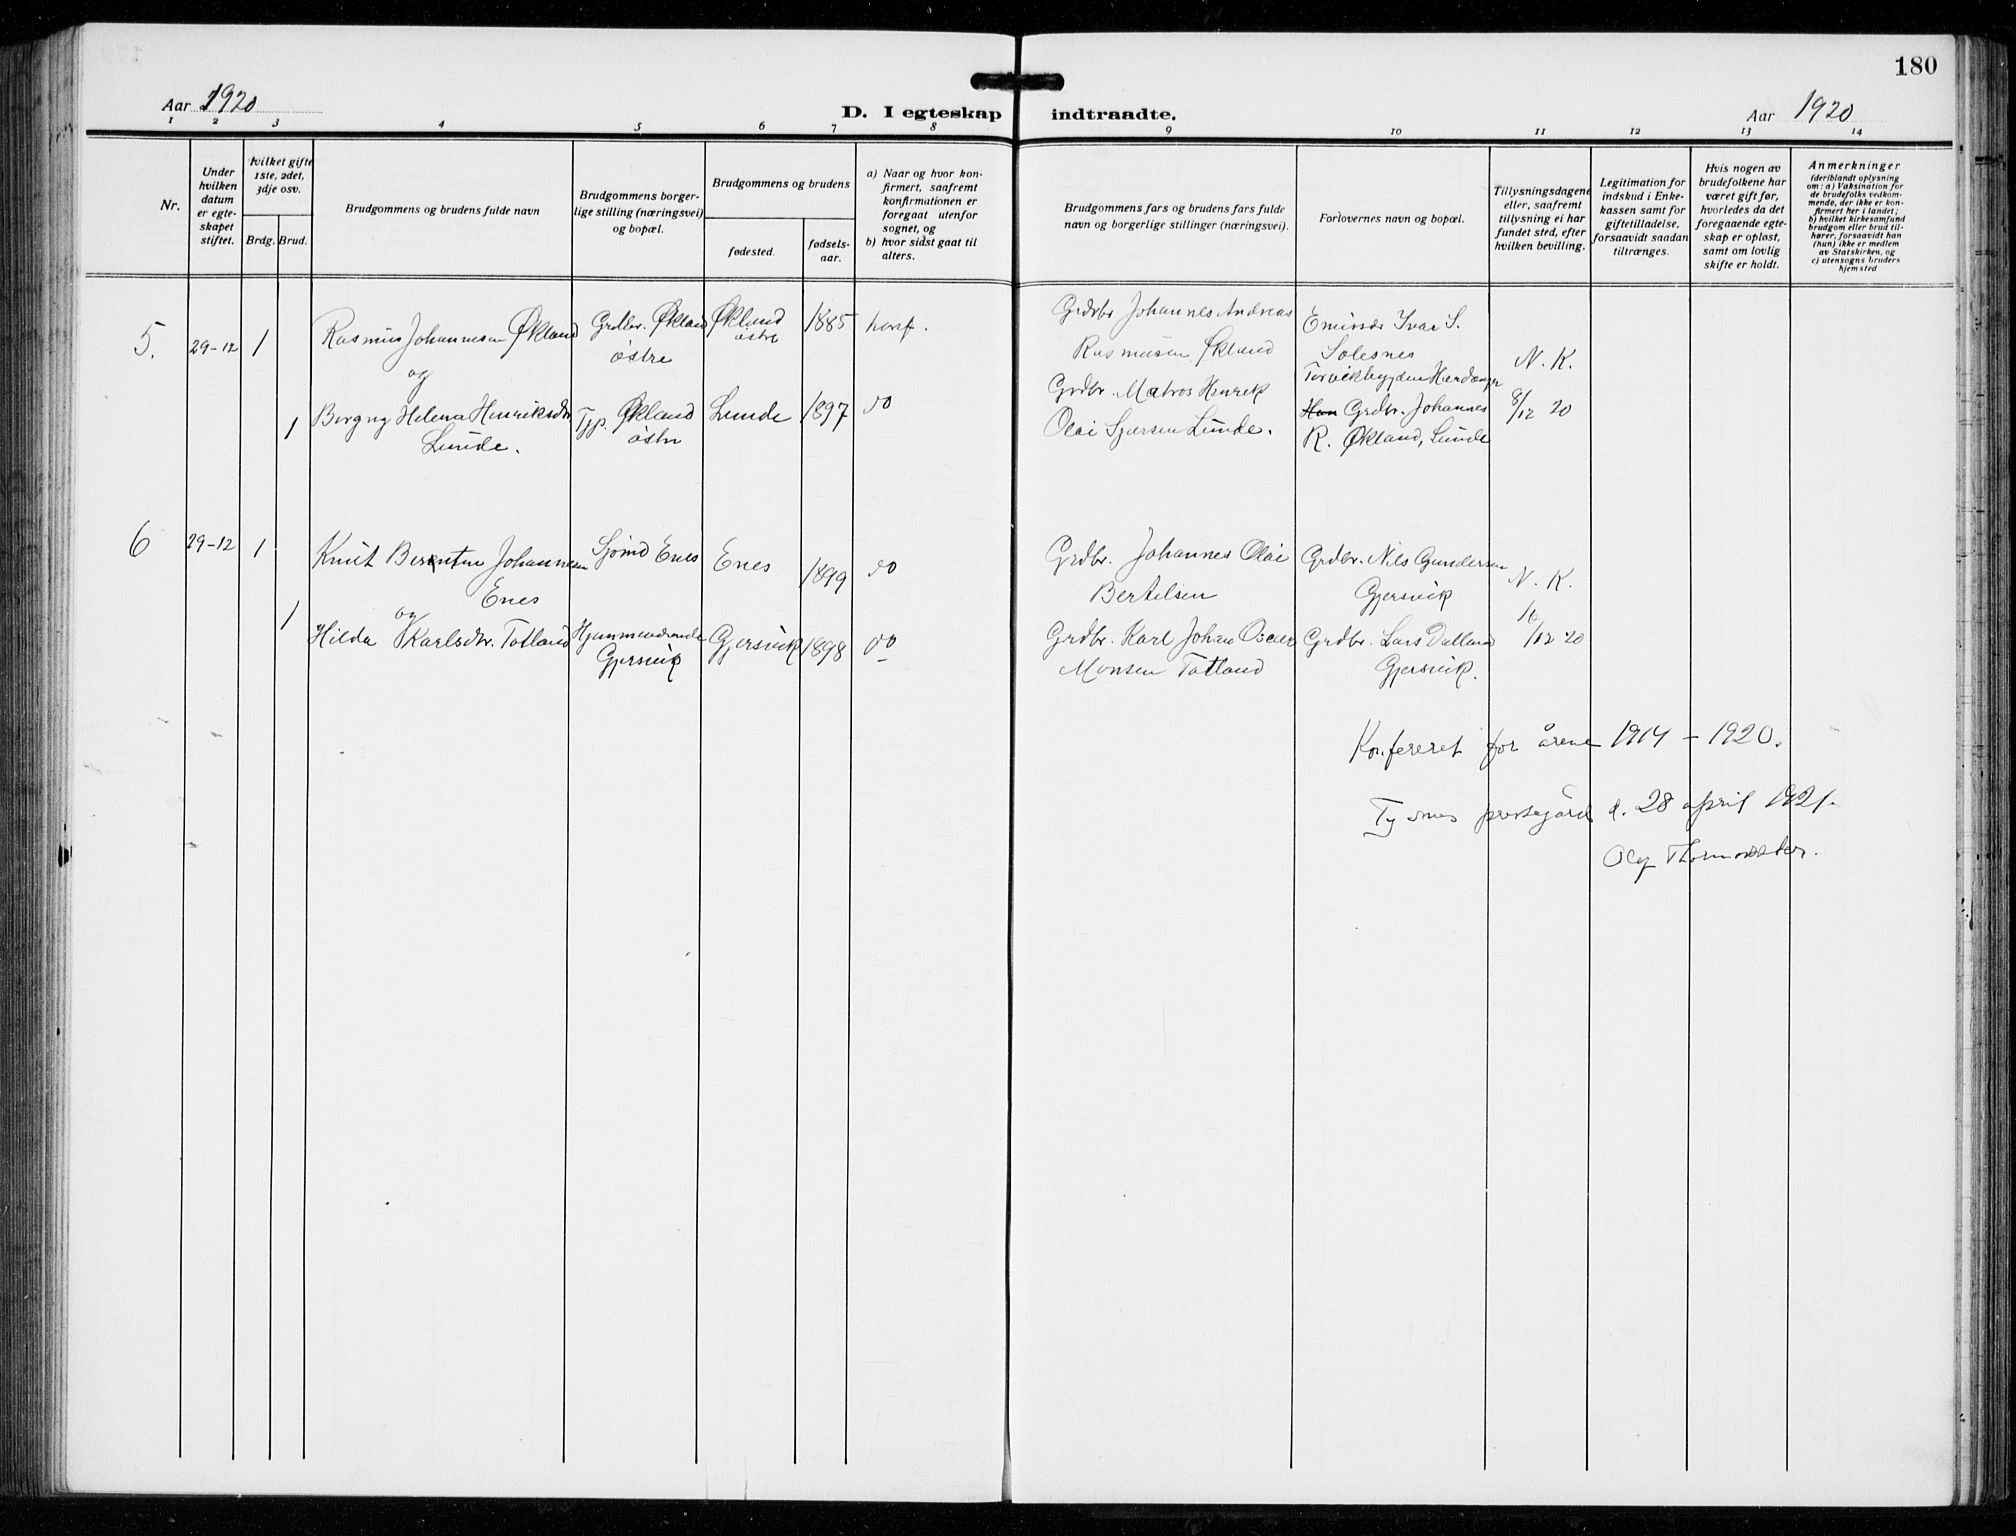 180
Aar 1920
D. I egteskap indtraadte.
Aar 1920
1 2 3 4 5 6 7 8 9 10 11 12 13 14
Nr.
Under
hvilken
datum
er egte-
skapet
stiftet.
hvilket gifte
1ste, 2det,
3dje osv.
Brdg. Brud.
Brudgommens og brudens fulde navn
Brudgommens borger-
lige stilling (næringsvei)
og bopæl.
Brudgommens og brudens
fødested.
fødsels-
aar.
a) Naar og hvor kon-
firmert, saafremt
konfirmationen er
foregaat utenfor
sognet, og
b) hvor sidst gaat til
alters.
Brudgommens fars og brudens fars fulde
navn og borgerlige stillinger (næringsvei).
Forlovernes navn og bopæl.
Tillysningsdagene
eller, saafremt
tillysning ei har
fundet sted, efter
hvilken bevilling.
Legitimation for
indskud i Enke-
kassen samt for
giftetilladelse,
forsaavidt saadan
tiltrænges.
Hvis nogen av
brudefolkene har
været gift før,
hvorledes da det
foregaaende egte-
skap er opløst,
samt om lovlig
skifte er holdt.
Anmerkninger
(deriblandt oplysning
om: a) Vaksination for
de brudefolks vedkom-
mende, der ikke er kon-
firmert her i landet;
b) hvilket kirkesamfund
brudgom eller brud til-
hører, forsaavidt han
(hun) ikke er medlem
av Statskirken, og
c) utensogns bruders
hjemsted
5. 29-12 1
Rasmus Johannesen Økland
og
Grdbr. Økland
østre
Økland
østre
1885
konf.
Grdbr Johannes Andreas
Rasmusen Økland
Emissær Ivar S.
Solesnes
Torvikbygden Hardanger
N. K.
8/12 20
1
Borgny Helena Henriksdtr.
Lunde.
Tjp. Økland
østre
Lunde
1897
do
Grdbr. Matros Henrik
Olai Sjursen Lunde.
Han Grdbr. Johannes
R. Økland, Lunde
6 29-12 1
Knut Berentin Johannesen
Enes
og
Sjømd Enes
Enes
1899
do
Grdbr. Johannes Olai
Bertilsen
Grdbr. Nils Gundersen
Gjersvik
N. K.
16/12 20
1
Hilda Karlsdtr. Totland
Hjemmeværende
Gjersvik
Gjersvik
1898
do
Grdbr. Karl Johan Oscar
Monsen Totland
Grdbr. Lars Dalland
Gjersvik.
Konfereret for årene 1914 - 1920.
Tysnes prestegård d. 28 april 1921.
Olaf